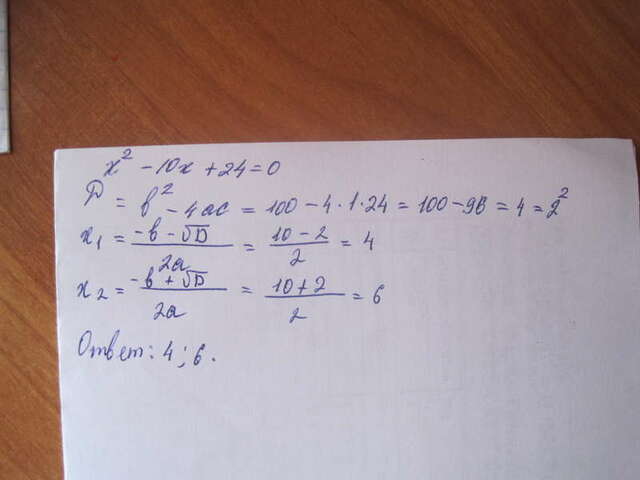 x² - 10x + 24 = 0
D = b² - 4ac = 100 - 4 · 1 · 24 = 100 - 96 = 4 = 2²
x₁ = (-b - √D)/2a = (10 - 2)/2 = 4
x₂ = (-b + √D)/2a = (10 + 2)/2 = 6
Ответ: 4; 6.